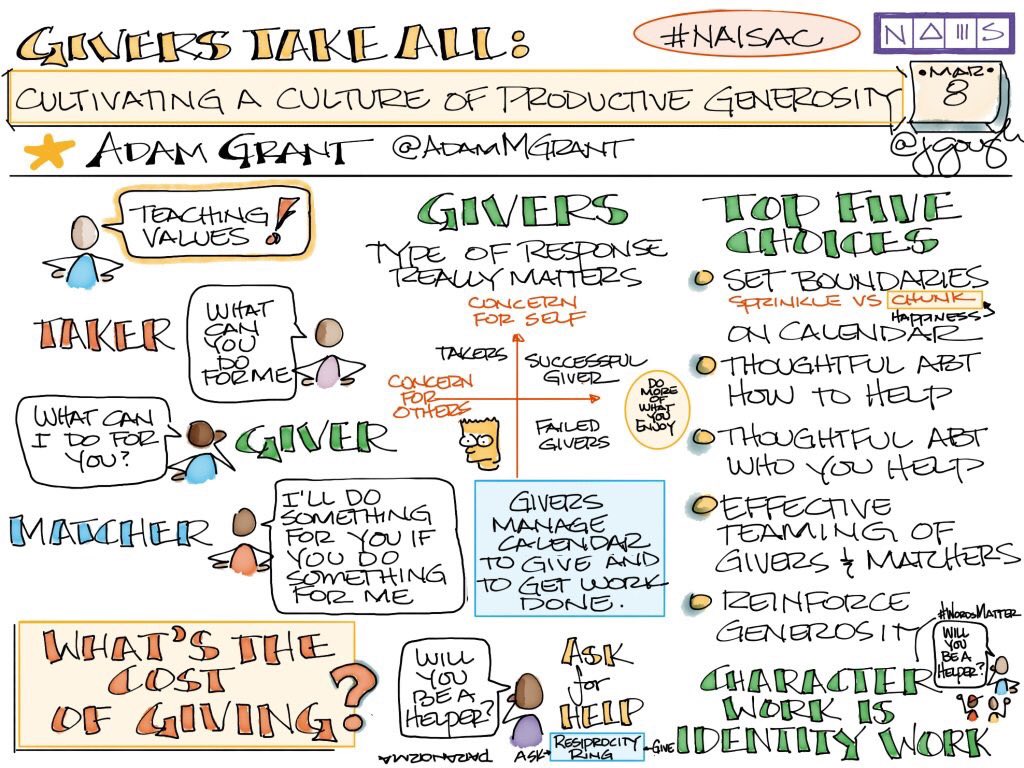 GIVERS TAKE ALL:
#NAISAC
NAIS
CULTIVATING A CULTURE OF PRODUCTIVE GENEROSITY
MAR
8
ADAM GRANT @ADAMMGRANT
@jgough
TEACHING
VALUES!
TAKER
WHAT
CAN
YOU
DO
FOR ME
WHAT CAN
I DO FOR
YOU?
GIVER
MATCHER
I'LL DO
SOMETHING
FOR YOU IF
YOU DO
SOMETHING
FOR ME
WHAT'S THE
COST
OF GIVING?
GIVERS
TYPE OF RESPONSE
REALLY MATTERS
CONCERN
FOR SELF
TAKERS
SUCCESSFUL
GIVER
CONCERN
FOR
OTHERS
FAILED
GIVERS
DO
MORE
OF
WHAT
YOU
ENJOY
GIVERS
MANAGE
CALENDAR
TO GIVE AND
TO GET WORK
DONE.
WILL
YOU
BE A
HELPER?
ASK
for
HELP
ASK
RESIPROCITY
RING
GIVE
PARANORMA
TOP FIVE
CHOICES
SET BOUNDARIES
SPRINKLE VS CHUNK
HAPPINESS
ON CALENDAR
THOUGHTFUL ABT
HOW TO HELP
THOUGHTFUL ABT
WHO YOU HELP
EFFECTIVE
TEAMING OF
GIVERS & MATCHERS
REINFORCE
GENEROSITY
#WORDSMATTER
WILL
YOU
BE A
HELPER?
CHARACTER
WORK IS
IDENTITY WORK